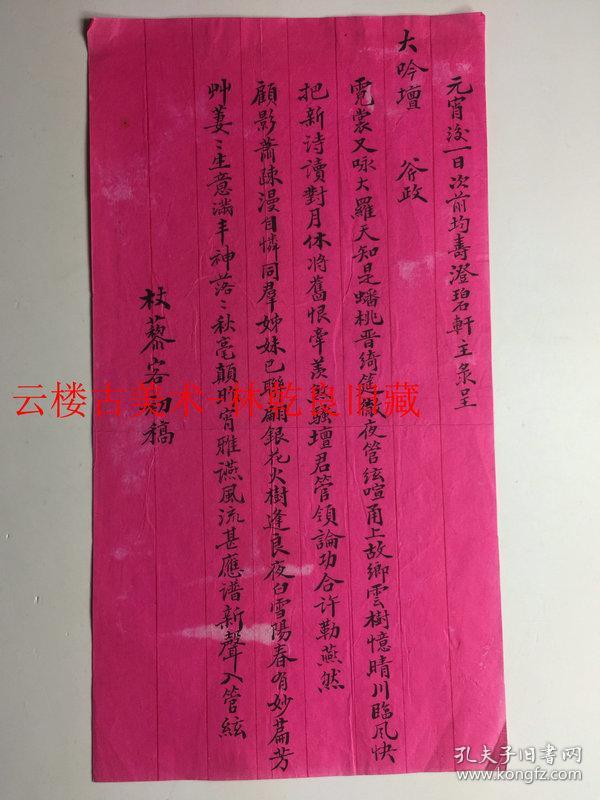 元宵後一日次前均壽澄碧軒主彔呈
大吟壇 斧政
霓裳又咏大羅天知是蟠桃晋綺筵 夜管絃喧甬上故鄉雲樹憶晴川臨風快
把新詩讀對月休將舊恨牽羡 騷壇君管領論功合许勒燕然
顧影蕭疎漫自憐同羣姊妹已聯翩銀花火樹逢良夜白雪陽春有妙篇芳
艸萋〻生意滿丰神落〻秋毫顛 宵雅讌風流甚應譜新聲入管絃
杖藜客初稿
云楼古美术-林乾良旧藏
孔夫子旧书网
www.kongfz.com